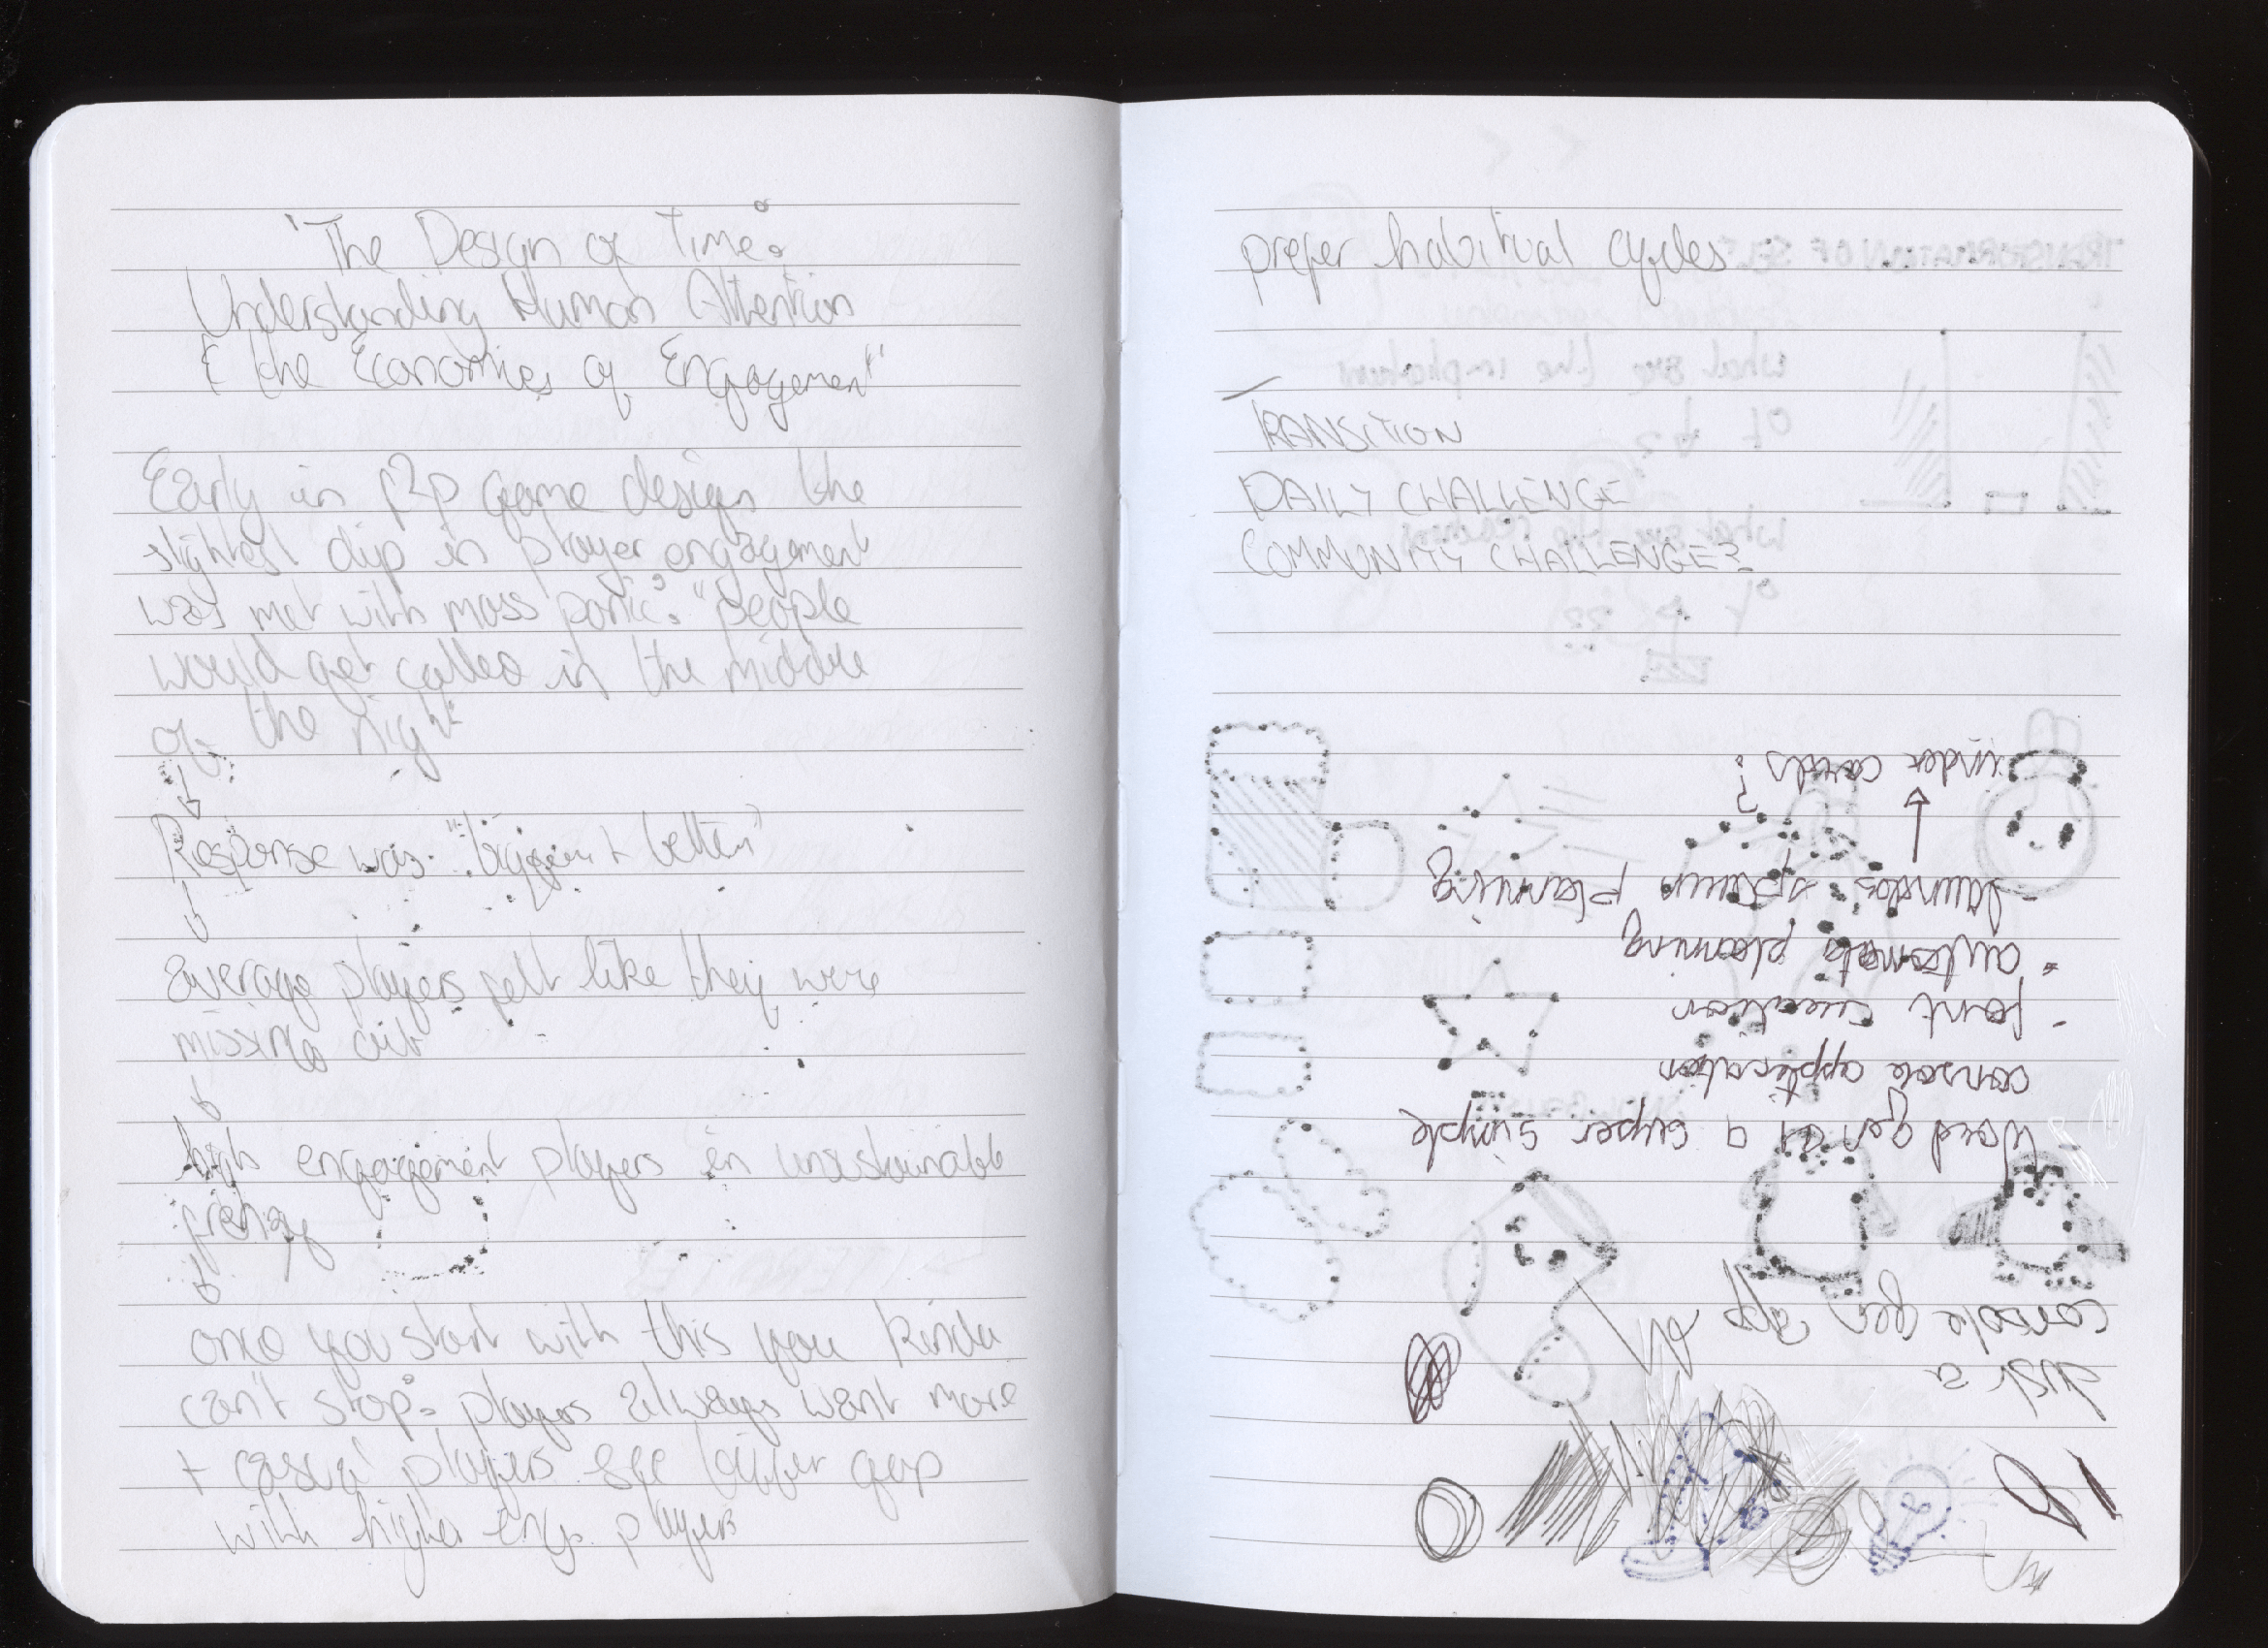 "The Design of Time:
Understanding Human Attention
& the Economies of Engagement"
Early in f2p game design the
slightest dip in player engagement
was met with mass panic: "people
would get called in the middle
of the night
Response was: "bigger + better"
average players felt like they were
missing out
high engagement players in unsustainable
frenzy
once you start with this you kinda
can't stop: players always want more
+ casual players see bigger gap
with higher eng. players
prefer habitual cycles
TRANSITION
DAILY CHALLENGE
COMMUNITY CHALLENGE?
console gen app
Word gen as a super simple
console application
- font creation
- automata planning
- spawn planning
→ under cards?